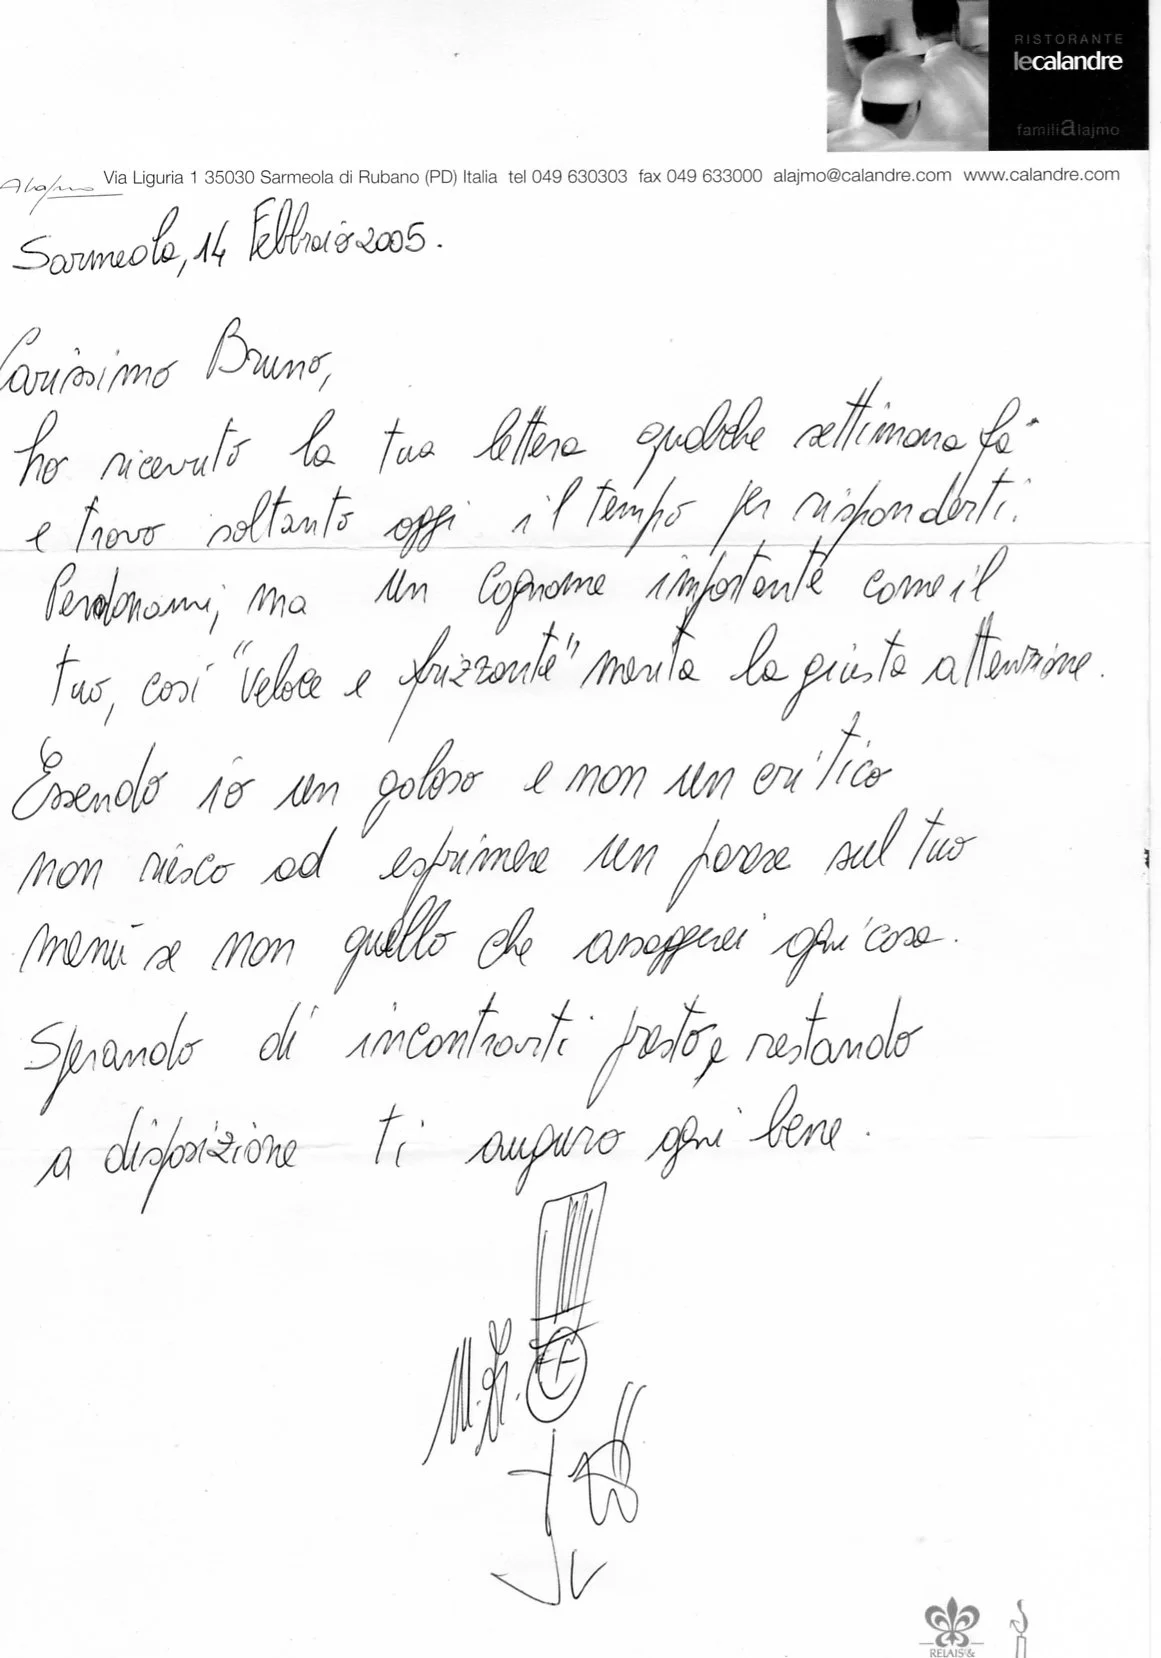 RISTORANTE
lecalandre
familiAlajmo
Alajmo Via Liguria 1 35030 Sarmeola di Rubano (PD) Italia tel 049 630303 fax 049 633000 alajmo@calandre.com www.calandre.com
Sarmeola, 14 Febbraio 2005.
Carissimo Bruno,
ho ricevuto la tua lettera qualche settimana fa
e trovo soltanto oggi il tempo per risponderti.
Perdonami, ma un cognome importante come il
tuo, così "veloce e frizzante" merita la giusta attenzione.
Essendo io un goloso e non un critico
non riesco ad esprimere un parere sul tuo
menù se non quello che assaggerei ogni cosa.
Sperando di incontrarti presto, e restando
a disposizione ti auguro ogni bene.
RELAIS &